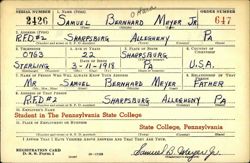 SERIAL NUMBER 1. NAME (Print) ORDER NUMBER
2426 SAMUEL BERNHARD MEYER JR. 647
2. ADDRESS (Print)
R.F.D #2 SHARPSBURG ALLEGHENY PA
3. TELEPHONE 4. AGE IN YEARS 5. PLACE OF BIRTH 6. COUNTRY OF CITIZENSHIP
0763 22 SHARPSBURG
STERLING 3-11-1918 PA U.S.A.
7. NAME OF PERSON WHO WILL ALWAYS KNOW YOUR ADDRESS 8. RELATIONSHIP OF THAT PERSON
MR SAMUEL BERNHARD MEYER FATHER
9. ADDRESS OF THAT PERSON
R.F.D #2 SHARPSBURG ALLEGHENY PA
10. EMPLOYER'S NAME
Student in The Pennsylvania State College
11. PLACE OF EMPLOYMENT OR BUSINESS
State College, Pennsylvania
I AFFIRM THAT I HAVE VERIFIED ABOVE ANSWERS AND THAT THEY ARE TRUE.
REGISTRATION CARD
D. S. S. Form 1
Samuel B. Meyer Jr.